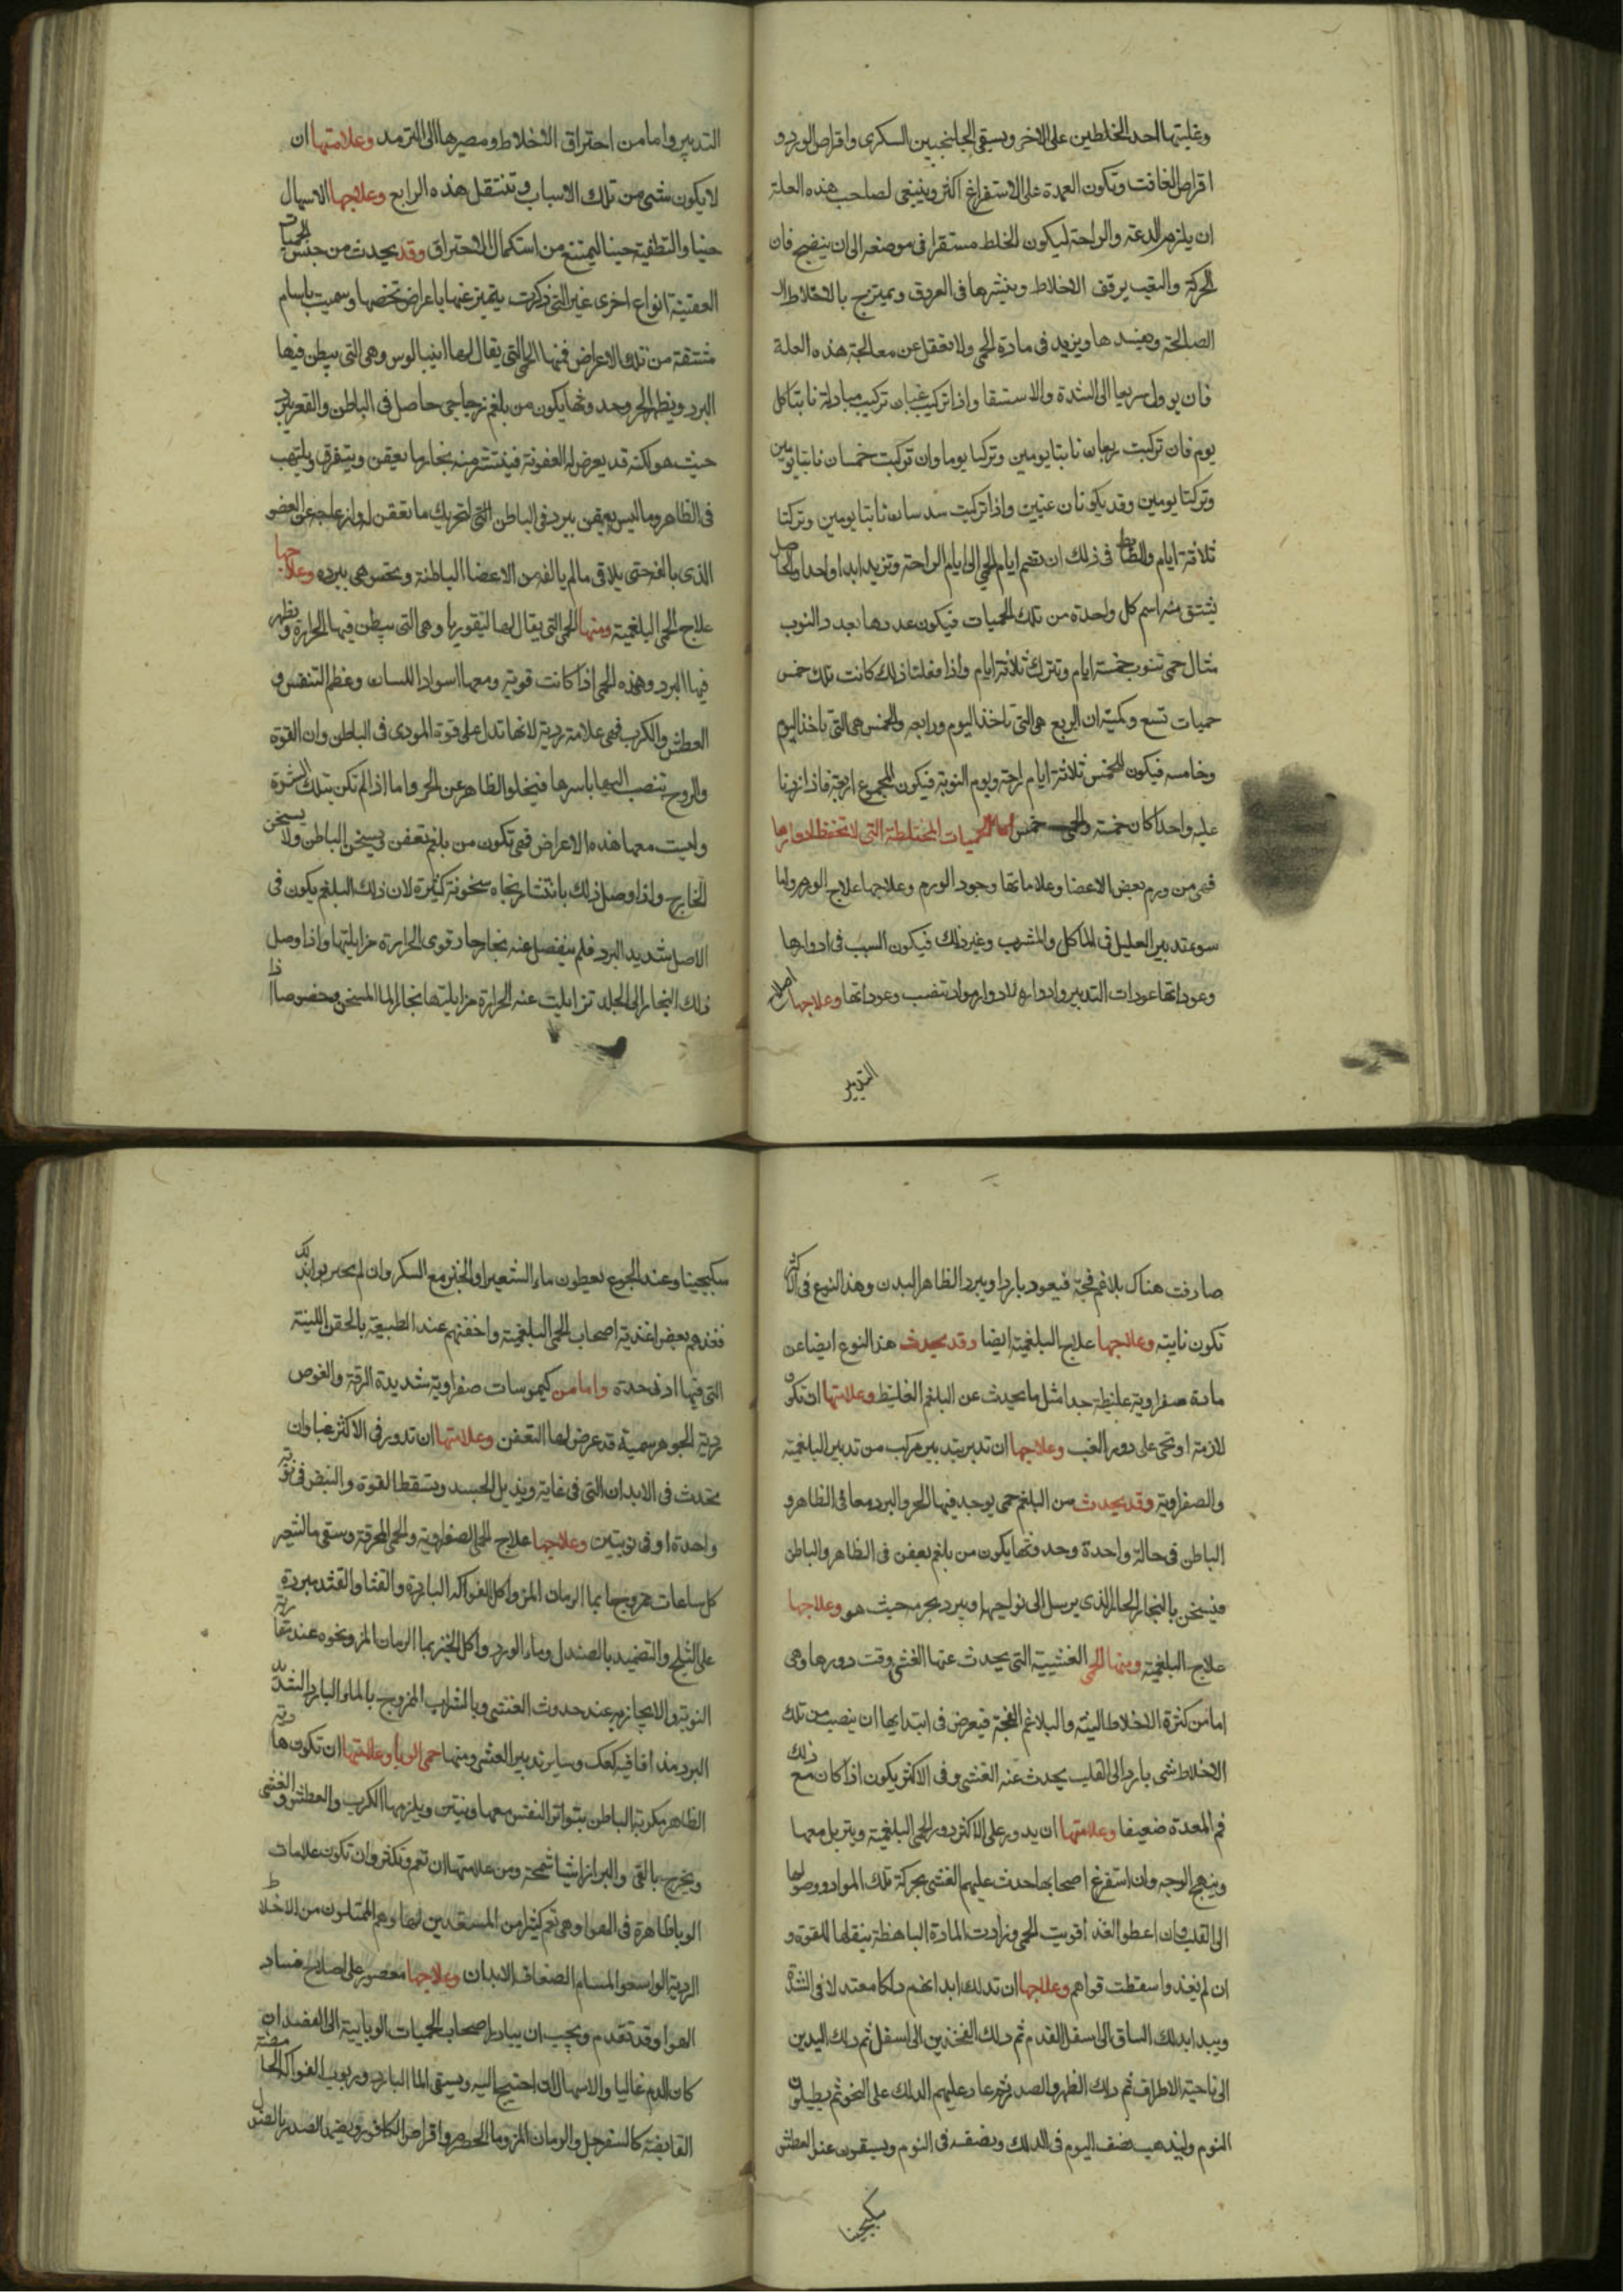 وغلبتها احد الخلطين على الاخر ويسقى الجلنجبين السكرى واقراص الورد و
اقراص الغافت وتكون العمدة على الاستفراغ اكثر وينبغى لصاحب هذه العلة
ان يلزم الدعة والراحة ليكون الخلط مستقرا فى موضعه الى ان ينضج فان
الحركة والتعب يرقق الاخلاط وينشرها فى العروق ويمتزج بالاخلاط ال
الصالحة ويفسدها ويزيد فى مادة الحمى ولا تغفل عن معالجة هذه العلة
فان يوول سريعا الى الشدة والاستسقا واذا تركبت غبان تركيب مبادلة نابتا كل
يوم فان تركبت ربعان نابتا يومين وتركتا يوما وان تركبت خمسان نابتا يومين
وتركتا يومين وقد يكونان غبين واذا تركبت سدسان نابتا يومين وتركتا
ثلاثة ايام والضابط فى ذلك ان تضم ايام الحمى الى ايام الراحة وتزيد ابدا واحدا والحاصل
يشتق منه اسم كل واحدة من تلك الحميات فيكون عددها بعدد النوب
مثال حمى تنوب خمسة ايام وتترك ثلاثة ايام واذا فعلنا ذلك كانت تلك خمس
حميات تسع وكمية ان الربع هى التى تاخذ اليوم ورابعه والخمس هى التى تاخذ اليوم
وخامسه فيكون للخمس ثلاثة ايام راحة ويوم النوبة فيكون المجموع اربعة فاذا زدنا
عليه واحدا كان خمسة والحمى خمس اما الحميات المختلطة التى لا تحفظ ادوارها
فهى من ورم بعض الاعضا وعلاماتها وجود الورم وعلاجها علاج الورم واما
سوء تدبير العليل فى المآكل والمشرب وغير ذلك فيكون السبب فى ادوارها
وعوداتها عودات التدبير وادواره لادوار مواد تنصب وعوداتها وعلاجها اصلاح
التدبير
التدبير واما من احتراق الاخلاط ومصيرها الى الترمد وعلامتها ان
لا يكون شى من تلك الاسباب وتنتقل هذه الى الربع وعلاجها الاسهال
حينا والتطفية حينا ليمتنع من استكمال الاحتراق وقد يحدث من جنس الحميات
العفنية انواع اخرى غير التى ذكرت يتميز عنها باعراض تخصها وسميت باسام
مشتقة من تلك الاعراض فمنها الحمى التى يقال لها انيبالوس وهى التى يبطن فيها
البرد ويظهر الحر وحدوثها يكون من بلغم زجاجى حاصل فى الباطن والقعر يبرد
حيث هو لكنه قد يعرض له العفونة فينتشر منه بخار ما يعفن ويتفرق ويلتهب
فى الظاهر وما ليس يعفن يبرد فى الباطن التى لتحريك ما تعفن له وازعاجه عن العضو
الذى بالفه حتى يلاقى مالم يالفه من الاعضا الباطنة وتحس هى ببرده وعلاجها
علاج الحمى البلغمية ومنها الحمى التى يقال لها ليفوريا وهى التى يبطن فيها الحرارة ويظهر
فيها البرد وهذه الحمى اذا كانت قوية ومعها اسوداد اللسان وعظم التنفس و
العطش والكرب فهى علامة ردية لانها تدل على قوة المودى فى الباطن وان القوة
والروح تنصب اليها باسرها فيخلو الظاهر عن الحر واما اذا لم تكن بتلك الشدة
وليست معها هذه الاعراض فهى تكون من بلغم تعفن ويسخن الباطن ولا يسخن
الخارج واذا وصل ذلك بانتشار بخاره سخونة كثيرة لان ذلك البلغم يكون فى
الاصل شديد البرد فلم ينفصل عنه بخار حار قوى الحرارة مزايلتها واذا وصل
ذلك البخار الى الجلد تزايلت عنه الحرارة مزايلتها بخار الما المسخن وخصوصا اذا
صارفت هناك بلاغم فجة فيعود باردا ويبرد الظاهر البدن وهذا النوع فى الاكثر
تكون نايبة وعلاجها علاج البلغمية ايضا وقد يحدث هذا النوع ايضا عن
مادة صفراوية غليظة جدا مثل ما يحدث عن البلغم الغليظ وعلامتها ان تكون
لازمة او تحمى على دور الغب وعلاجها ان تدبر بتدبير مركب من تدبير البلغمية
والصفراوية وقد يحدث من البلغم حمى يوجد فيها الحر والبرد معا فى الظاهر و
الباطن فى حالة واحدة وحدوثها يكون من بلغم يعفن فى الظاهر والباطن
فيسخن بالبخار الحار الذى يرسل الى نواحيها ويبرد بجرمه حيث هو وعلاجها
علاج البلغمية ومنها الحمى الغشيية التى يحدث عنها الغشى وقت دورها وهى
اما من كثرة الاخلاط النية والبلاغم الفجة فيعرض فى ابتدايها ان ينصب من تلك
الاخلاط شى بارد الى القلب يحدث عنه الغشى وفى الاكثر يكون اذا كان مع ذلك
فم المعدة ضعيفا وعلامتها ان يدور على الاكثر دور الحمى البلغمية ويتربل معها
ويتهبج الوجه وان استفرغ اصحابها حدث عليهم الغشى بحركة تلك المواد ووصولها
الى القلب وان اعطوا الغذا قويت الحمى وزادت المادة الباهظة بثقلها للقوة و
ان لم يغذوا سقطت قواهم وعلاجها ان تدلك ابدانهم دلكا معتدلا فى الشدة
ويبدا بدلك الساق الى اسفل القدم ثم دلك الفخذين الى اسفل ثم دلك اليدين
الى ناحية الاطراف ثم دلك الظهر والصدر ثم عاد عليهم الدلك على النحو ثم يطيلون
النوم وليذهب نصف اليوم فى الدلك ونصفه فى النوم ويسقون عند العطش
سكنجبينا
سكنجبينا وعند الجوع يعطون ماء الشعير او الخبز مع السكر وان لم يجربوا بذلك
فغذهم ببعض اغذية اصحاب الحمى البلغمية واحقنهم عند الطبيعة بالحقن اللينة
التى فيها ادنى حدة واما من كيموسات صفراوية شديدة الرقة والغوص
ردية الجوهر سمية قد عرض لها التعفن وعلامتها ان تدور فى الاكثر غبا وان
تحدث فى الابدان التى فى غاية ويذبل الجسد ويسقط القوة والنبض فى نوبة
واحدة او فى نوبتين وعلاجها علاج الحمى الصفراوية والحمى المحرقة ويسقى ما الشعير
كل ساعات ممزوجا بما الرمان المز واكل الفواكه الباردة والقثا والقثد مبردة
على الثلج والتضميد بالصندل وماء الورد واكل الخبز بما الرمان المز ونحوه عند تقارب
النوبة والايجار به عند حدوث الغشى وبالشراب الممزوج بالماء البارد الشديد
البرد مذافا فيه كعك وساير تدبير الغشى ومنها حمى الوبا وعلامتها ان تكون هادية
الظاهر مكربة الباطن بتواتر النفس معها وينتن ويلزمها الكرب والعطش والغشى
ويخرج بالقى والبراز اشيا سمجة ومن علامتها ان تعم وتكثر وان تكون علامات
الوبا ظاهرة فى الهوا وهى تعم كثيرا من المستعدين لها وهم الممتلون من الاخلاط
الردية الواسعوا المسام الضعاف الابدان وعلاجها مقصور على اصلاح فساد
الهوا وقد تقدم ويجب ان يبادر اصحاب الحميات الوبايية الى الفصد ان
كان الدم غالبا والاسهال ان احتيج اليه ويسقى الما البارد وربوب الفواكه الحامضة
القابضة كالسفرجل والرمان المز وما الحصرم واقراص الكافور ويضمد الصدر بالصندل